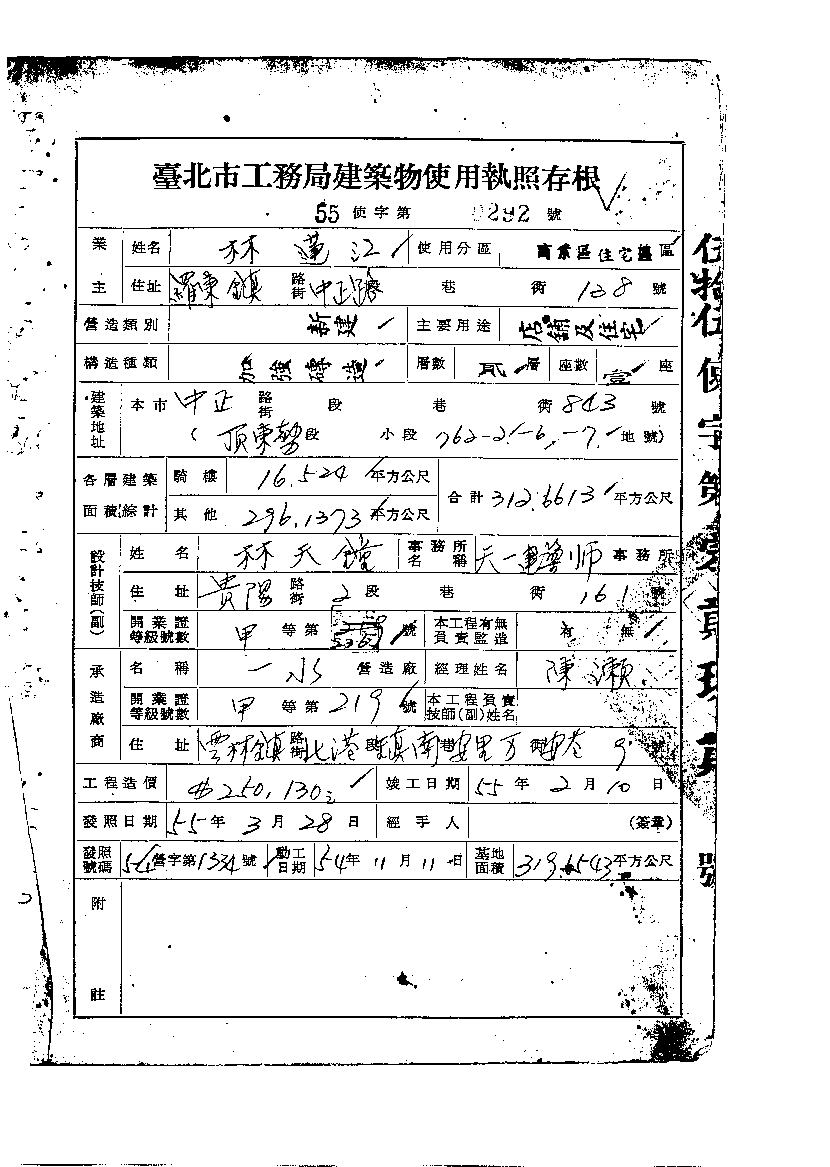 臺北市工務局建築物使用執照存根
55 使字第 0292 號
業主 姓名 林蓮江 使用分區 商業區住宅區
住址 羅東鎮 路街 中正路 巷 街 128 號
營造類別 新建 主要用途 店鋪及住宅
構造種類 加強磚造 層數 貳層 座數 壹座
建築地址 本市 中正 路街 段 巷 街 843 號
(頂東勢段 小段 762-2,-6,-7 地號)
各層建築面積綜計 騎樓 16.524 平方公尺 合計 312.6613 平方公尺
其他 296.1373 平方公尺
設計技師(副) 姓名 林天鐘 事務所名稱 天一建築師事務所
住址 貴陽 路街 2段 巷 街 161 號
開業證等級號數 甲等第 號 本工程有無負責監造 有 無
承造廠商 名稱 一水 營造廠 經理姓名 陳瀨
開業證等級號數 甲等第 219 號 本工程負責技師(副)姓名
住址 雲林鎮 路街 北港 鎮南 巷 里 9 號
工程造價 $250,130 竣工日期 55年2月10日
發照日期 55年3月28日 經手人 (簽章)
發照號碼 54營字第1334號 動工日期 54年11月11日 基地面積 319.6543平方公尺
附註
伍拾伍使字第 貳玖貳 號